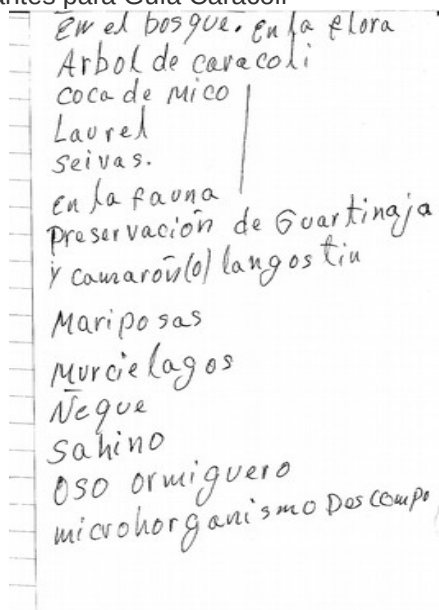 antes para Guía Caracolí
En el bosque. En la flora
Arbol de caracoli
coca de Mico
Laurel
Seivas.
en la fauna
preservación de Guartinaja
y camarón(o) langostin
Mariposas
Murcielagos
Ñeque
Sahino
Oso ormiguero
microhorganismo Descompo